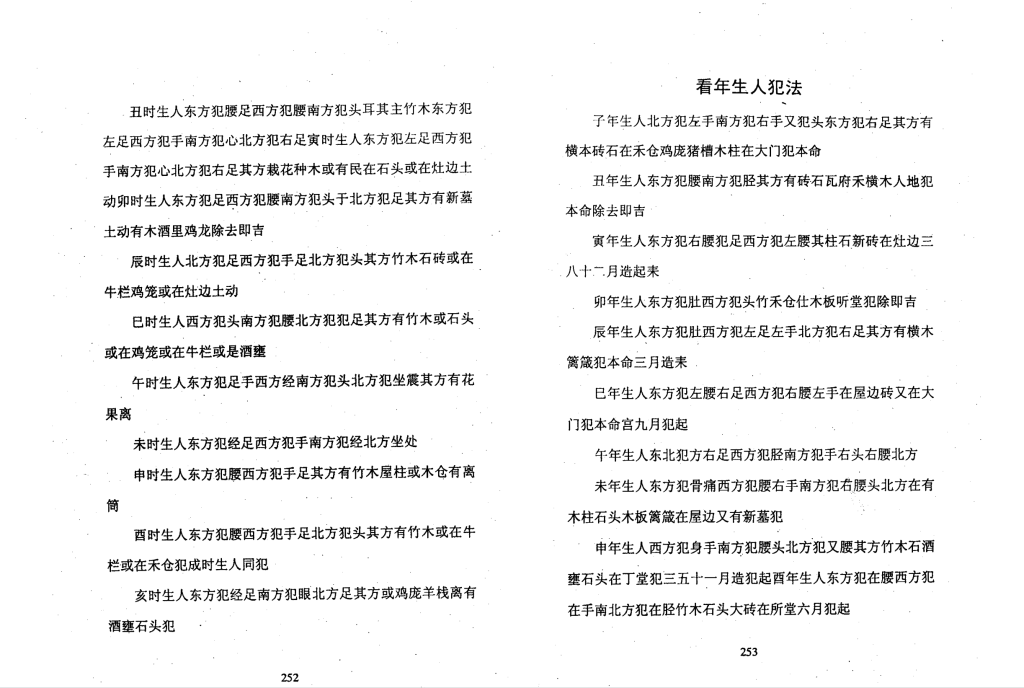 丑时生人东方犯腰足西方犯腰南方犯头耳其主竹木东方犯
左足西方犯手南方犯心北方犯右足寅时生人东方犯左足西方犯
手南方犯心北方犯右足其方栽花种木或有民在石头或在灶边土
动卯时生人东方犯足西方犯腰南方犯头于北方犯足其方有新墓
土动有木酒里鸡龙除去即吉
辰时生人北方犯足西方犯手足北方犯头其方竹木石砖或在
牛栏鸡笼或在灶边土动
巳时生人西方犯头南方犯腰北方犯犯足其方有竹木或石头
或在鸡笼或在牛栏或是酒壅
午时生人东方犯足手西方经南方犯头北方犯坐震其方有花
果离
未时生人东方犯经足西方犯手南方犯经北方坐处
申时生人东方犯腰西方犯手足其方有竹木屋柱或木仓有离
筒
酉时生人东方犯腰西方犯手足北方犯头其方有竹木或在牛
栏或在禾仓犯成时生人同犯
亥时生人东方犯经足南方犯眼北方足其方或鸡庞羊栈离有
酒壅石头犯
252
看年生人犯法
子年生人北方犯左手南方犯右手又犯头东方犯右足其方有
横本砖石在禾仓鸡庞猪槽木柱在大门犯本命
丑年生人东方犯腰南方犯胫其方有砖石瓦府禾横木人地犯
本命除去即吉
寅年生人东方犯右腰犯足西方犯左腰其柱石新砖在灶边三
八十二月造起来
卯年生人东方犯肚西方犯头竹禾仓仕木板听堂犯除即吉
辰年生人东方犯肚西方犯左足左手北方犯右足其方有横木
篱箴犯本命三月造来
巳年生人东方犯左腰右足西方犯右腰左手在屋边砖又在大
门犯本命宫九月犯起
午年生人东北犯方右足西方犯胫南方犯手右头右腰北方
未年生人东方犯骨痛西方犯腰右手南方犯右腰头北方在有
木柱石头木板篱箴在屋边又有新墓犯
申年生人西方犯身手南方犯腰头北方犯又腰其方竹木石酒
壅石头在丁堂犯三五十一月造犯起酉年生人东方犯在腰西方犯
在手南北方犯在胫竹木石头大砖在所堂六月犯起
253